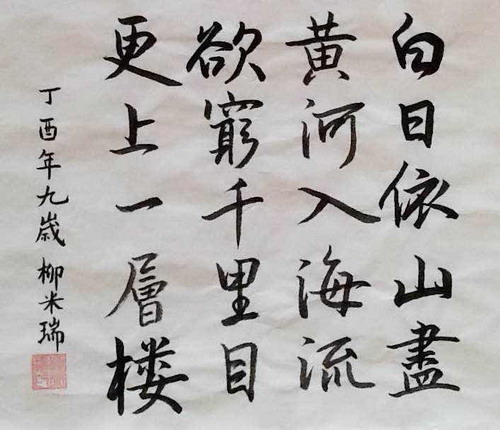 白日依山盡
黄河入海流
欲窮千里目
更上一層楼
丁酉年九歲柳米瑞